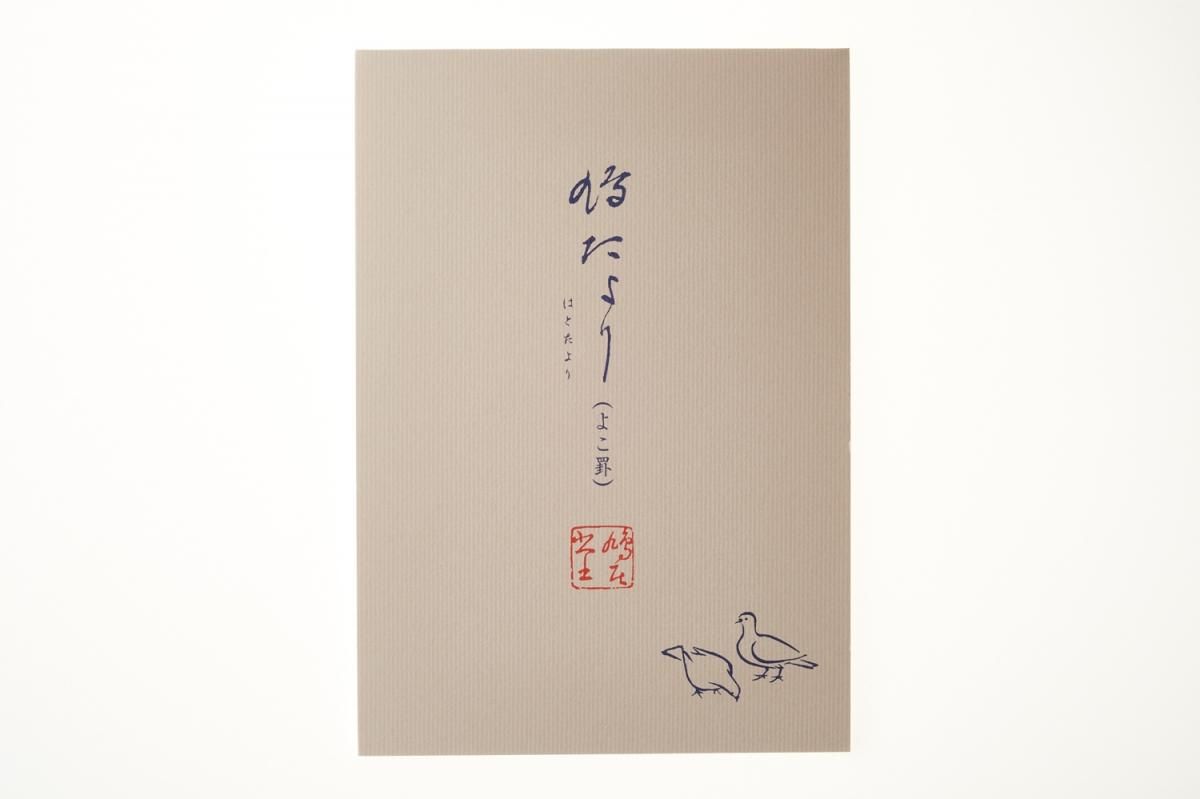 鳩たより
はとたより
(よこ罫)
鳩居堂